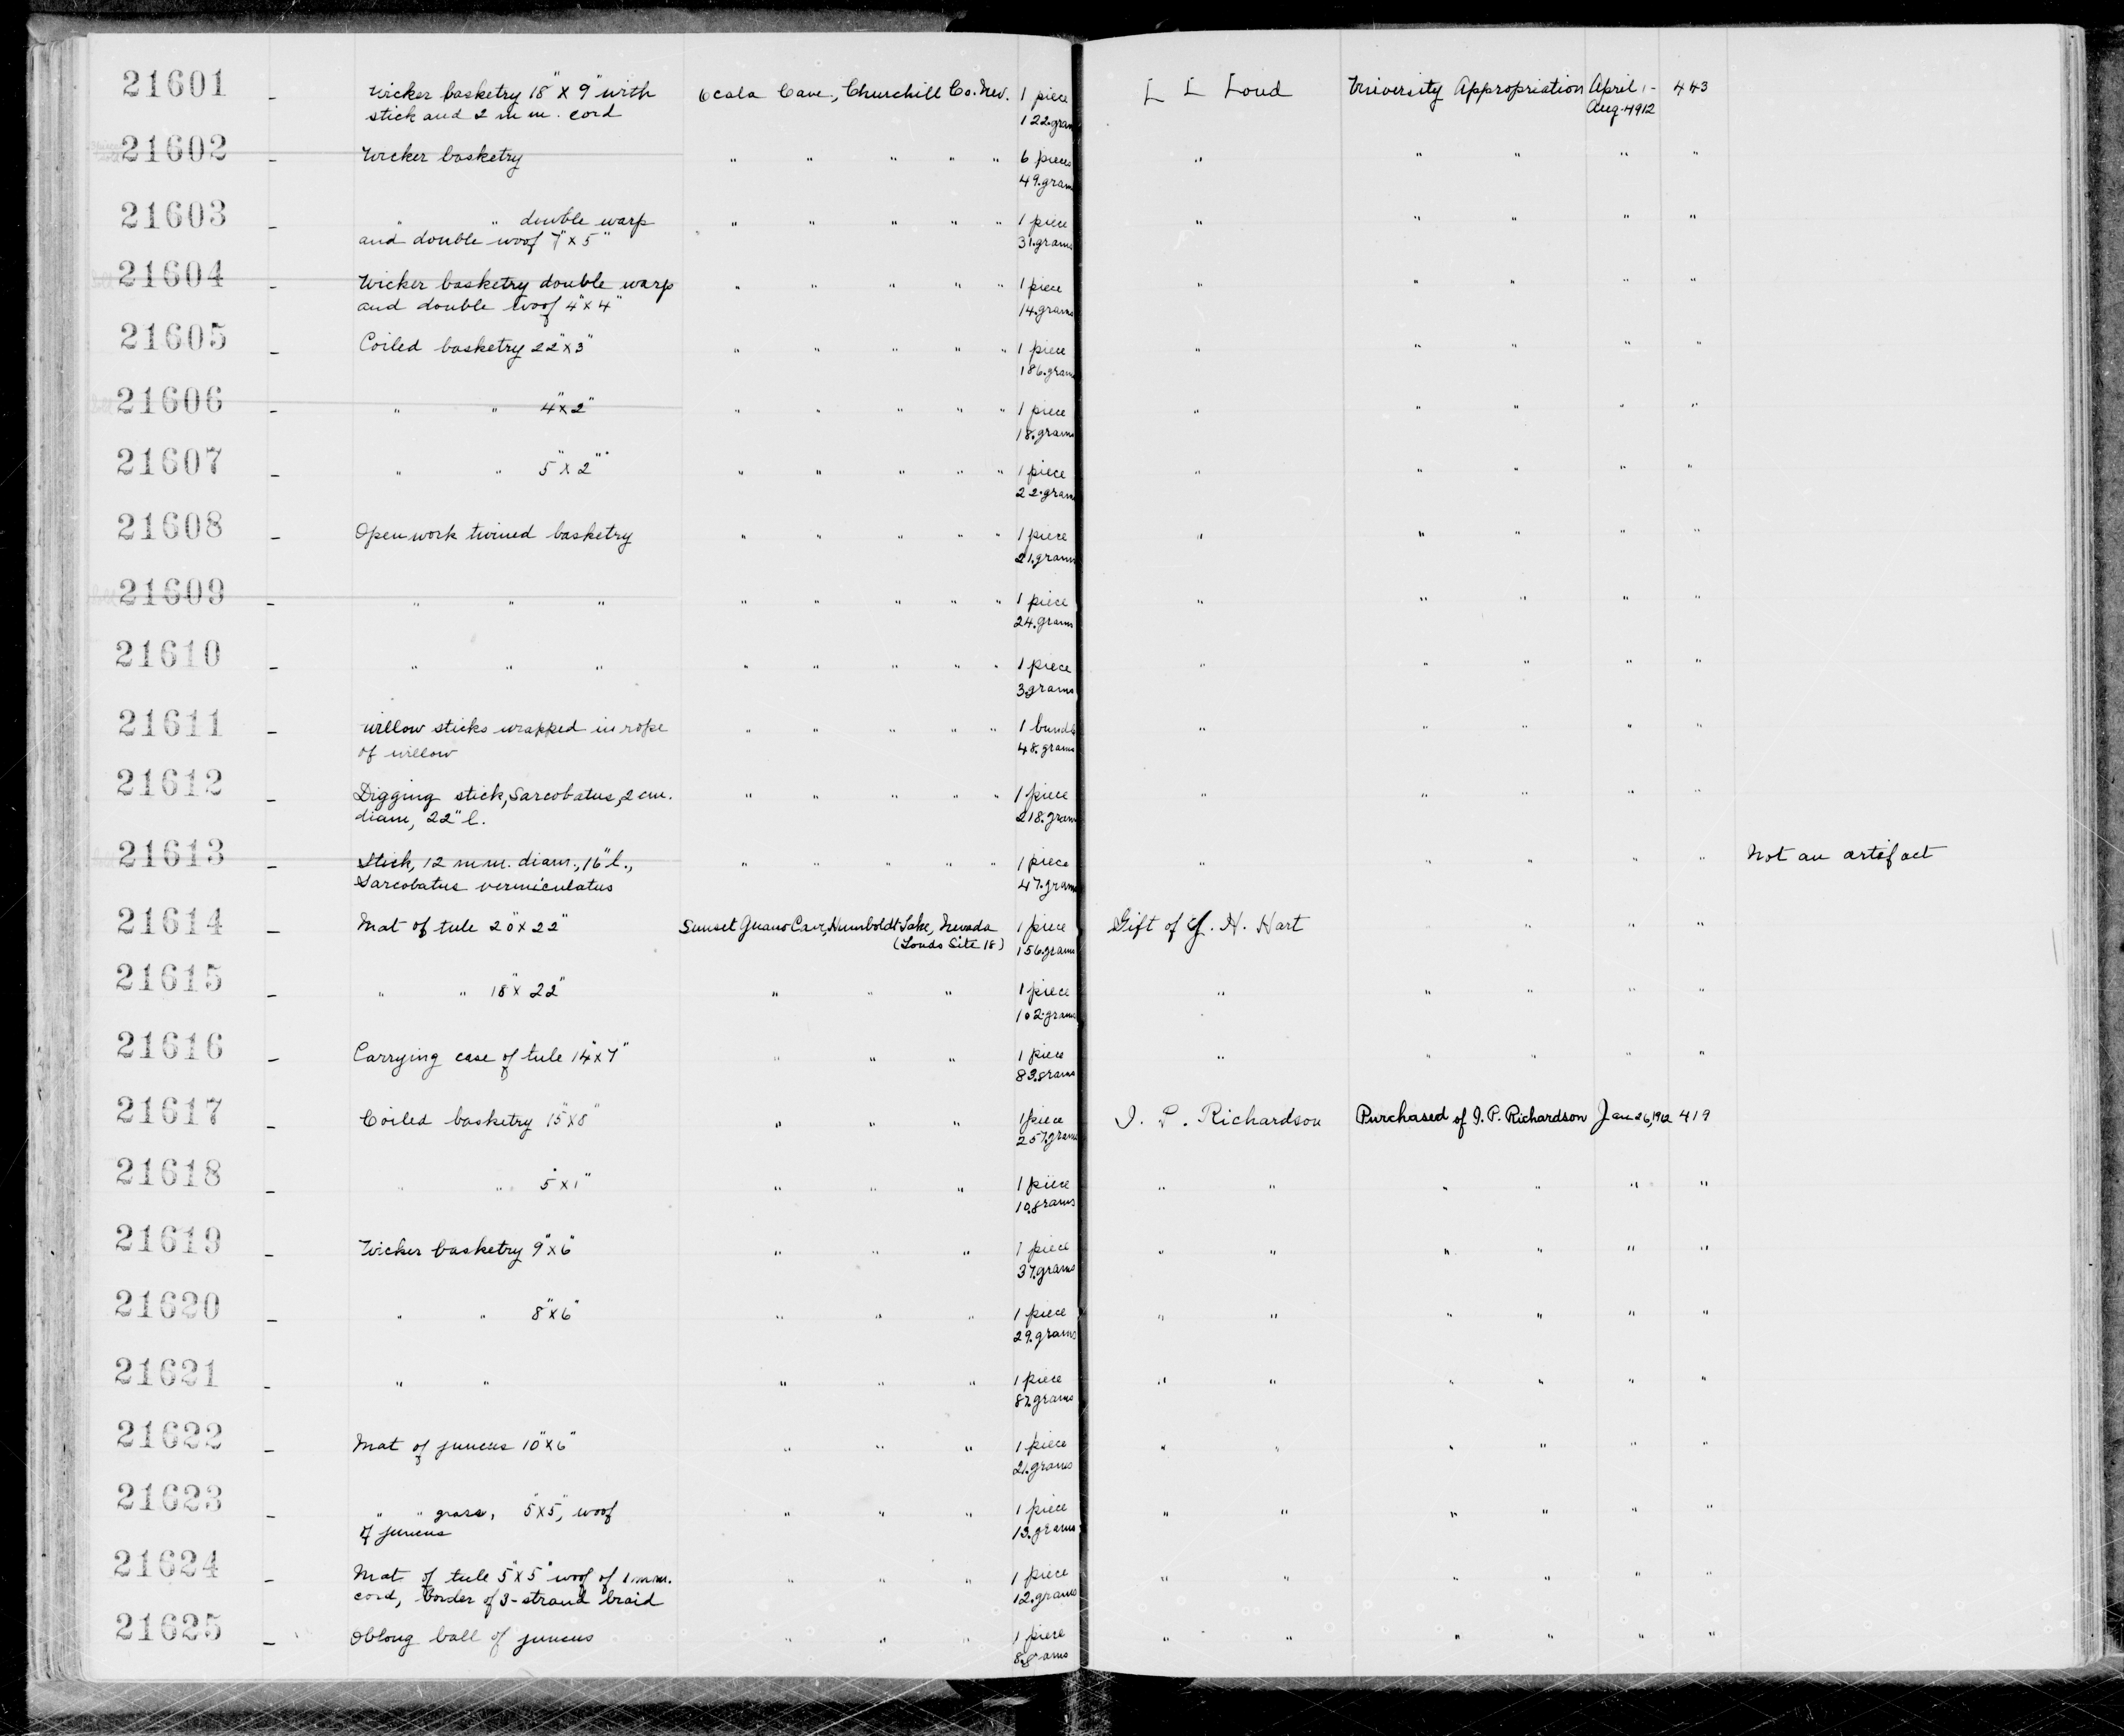 21601 - Wicker basketry 18" X 9" with Ocala Cave, Churchill Co. Nev. 1 piece L L Loud University Appropriation April 1- 443
stick and 2 m m. cord 122.gram Aug. 1912
21602 - Wicker basketry " " " " " 6 pieces " " " " "
49.gram
21603 - " " double warp " " " " " 1 piece " " " " "
and double woof 7" x 5" 31.grams
21604 - Wicker basketry double warp " " " " " 1 piece " " " " "
and double woof 4" x 4" 14.grams
21605 - Coiled basketry 22" x 3" " " " " " 1 piece " " " " "
186.gram
21606 - " " 4" x 2" " " " " " 1 piece " " " " "
18.grams
21607 - " " 5" x 2" " " " " " 1 piece " " " " "
22.gram
21608 - Open work twined basketry " " " " " 1 piece " " " " "
21.gram
21609 - " " " " " " " " 1 piece " " " " "
24.gram
21610 - " " " " " " " " 1 piece " " " " "
3.grams
21611 - Willow sticks wrapped in rope " " " " " 1 bundle " " " " "
of willow 48.grams
21612 - Digging stick, Sarcobatus, 2 cm. " " " " " 1 piece " " " " "
diam, 22" l. 218.gram
21613 - Stick, 12 m m. diam., 16" l., " " " " " 1 piece " " " " " Not an artifact
Sarcobatus vermiculatus 47.gram
21614 - Mat of tule 20" x 22" Sunset Guano Cave, Humboldt Lake, Nevada 1 piece Gift of H. Hart " " " "
(Louds Site 18) 156.grams
21615 - " " 18" x 22" " " " 1 piece " " " " "
102.grams
21616 - Carrying case of tule 14" x 7" " " " 1 piece " " " " "
83.grams
21617 - Coiled basketry 15" x 8" " " " 1 piece I. P. Richardson Purchased of I. P. Richardson Jan 26, 1912 419
257.grams
21618 - " " 5" x 1" " " " 1 piece " " " " " "
10.grams
21619 - Wicker basketry 9" x 6" " " " 1 piece " " " " " "
37.grams
21620 - " " 8" x 6" " " " 1 piece " " " " " "
29.grams
21621 - " " " " " 1 piece " " " " " "
87.grams
21622 - Mat of juncus 10" x 6" " " " 1 piece " " " " " "
21.grams
21623 - " " grass, 5" x 5", woof " " " 1 piece " " " " " "
of juncus 13.grams
21624 - Mat of tule 5" x 5" woof of 1 m m. " " " 1 piece " " " " " "
cord, border of 3-strand braid 12.grams
21625 - Oblong ball of juncus " " " 1 piece " " " " " "
8.grams